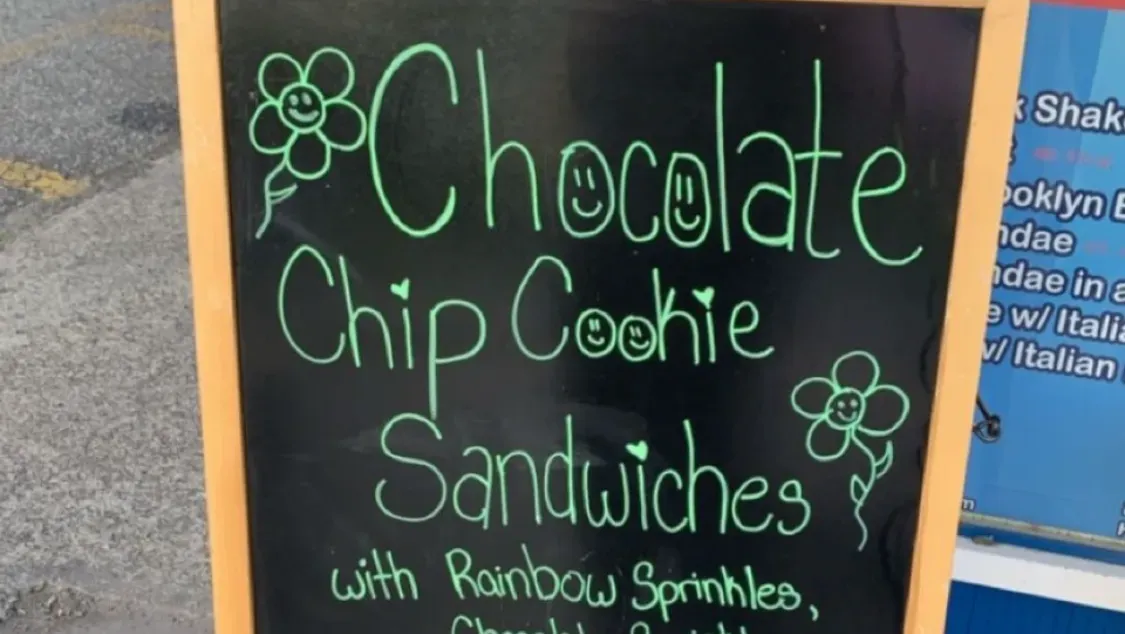 Chocolate
Chip Cookie
Sandwiches
with Rainbow Sprinkles,
Shake
ooklyn B
ndae
ndae in a
e w/ Italia
w/ Italian